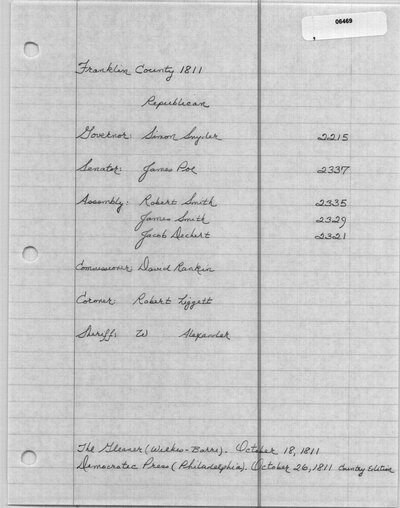 06469
Franklin County 1811
Republican
Governor: Simon Snyder 2215
Senator: James Poe 2337
Assembly: Robert Smith 2335
James Smith 2329
Jacob Dechert 2321
Commissioner: David Rankin
Coroner: Robert Liggett
Sheriff: W Alexander
The Gleaner (Wilkes-Barre). October 18, 1811
Democratic Press (Philadelphia). October 26, 1811 Country Edition